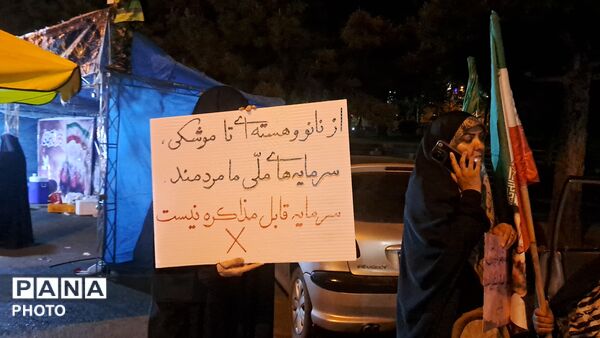 از نانو و هسته‌ای تا موشکی،
سرمایه‌های ملّی ما مردمند.
سرمایه قابل مذاکره نیست
X
PEUGEOT
PANA
PHOTO